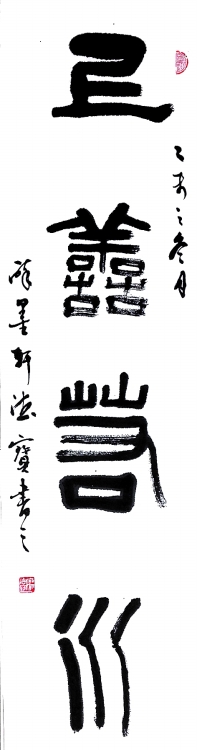 上善若水
乙未之冬月
醉墨軒德寶書之